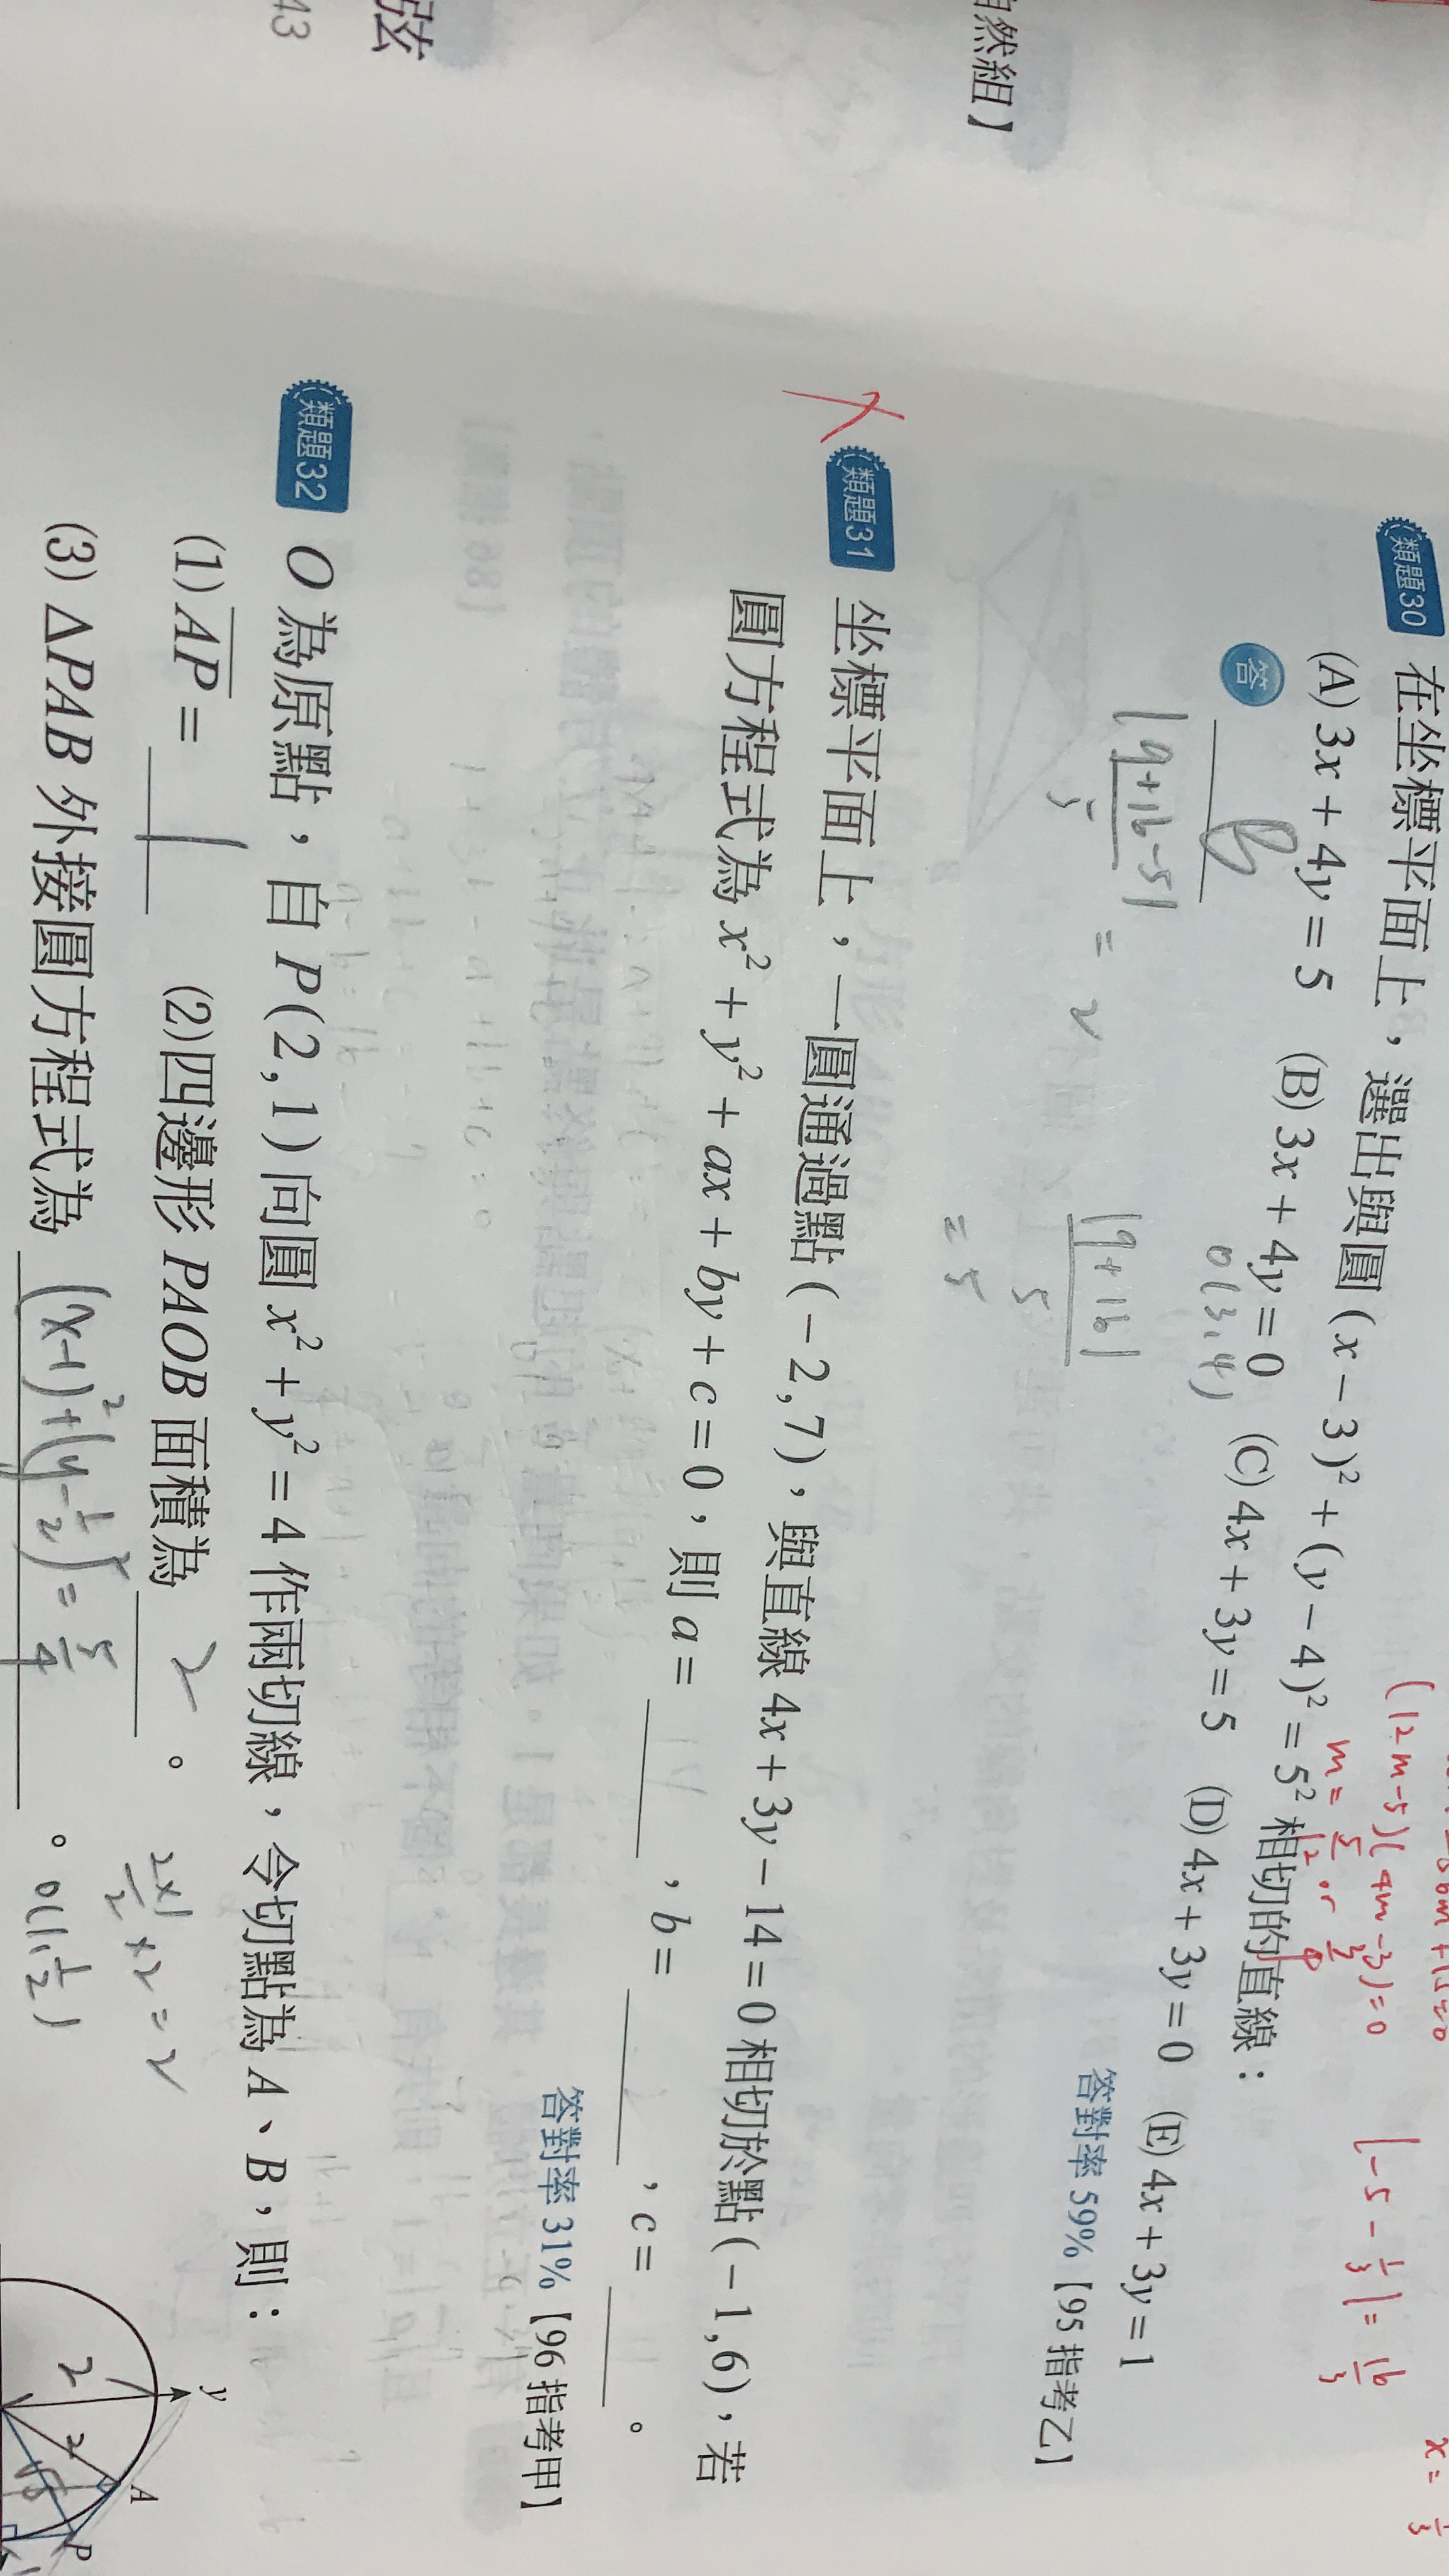 自然組】
弦
43
(12m-5)(4m-3)=0
m=5/12 or 3/4
|-5-1/3|=16/3
x=1/3
類題30 在坐標平面上,選出與圓(x-3)²+(y-4)²=5²相切的直線:
(A)3x+4y=5 (B)3x+4y=0 (C)4x+3y=5 (D)4x+3y=0 (E)4x+3y=1
O(3,4)
答 B
答對率59%【95指考乙】
|9+16-5|/5 = 2
|9+16|/5
=5
類題31 坐標平面上,一圓通過點(-2,7),與直線4x+3y-14=0相切於點(-1,6),若
圓方程式為x²+y²+ax+by+c=0,則a=____,b=____,c=____。
答對率31%【96指考甲】
類題32 O為原點,自P(2,1)向圓x²+y²=4作兩切線,令切點為A、B,則:
(1)AP=1 (2)四邊形PAOB面積為2。
2×1/2×2=2
(3)ΔPAB外接圓方程式為(x-1)²+(y-1/2)²=5/4。 O(1,1/2)
y
A
P
2
2